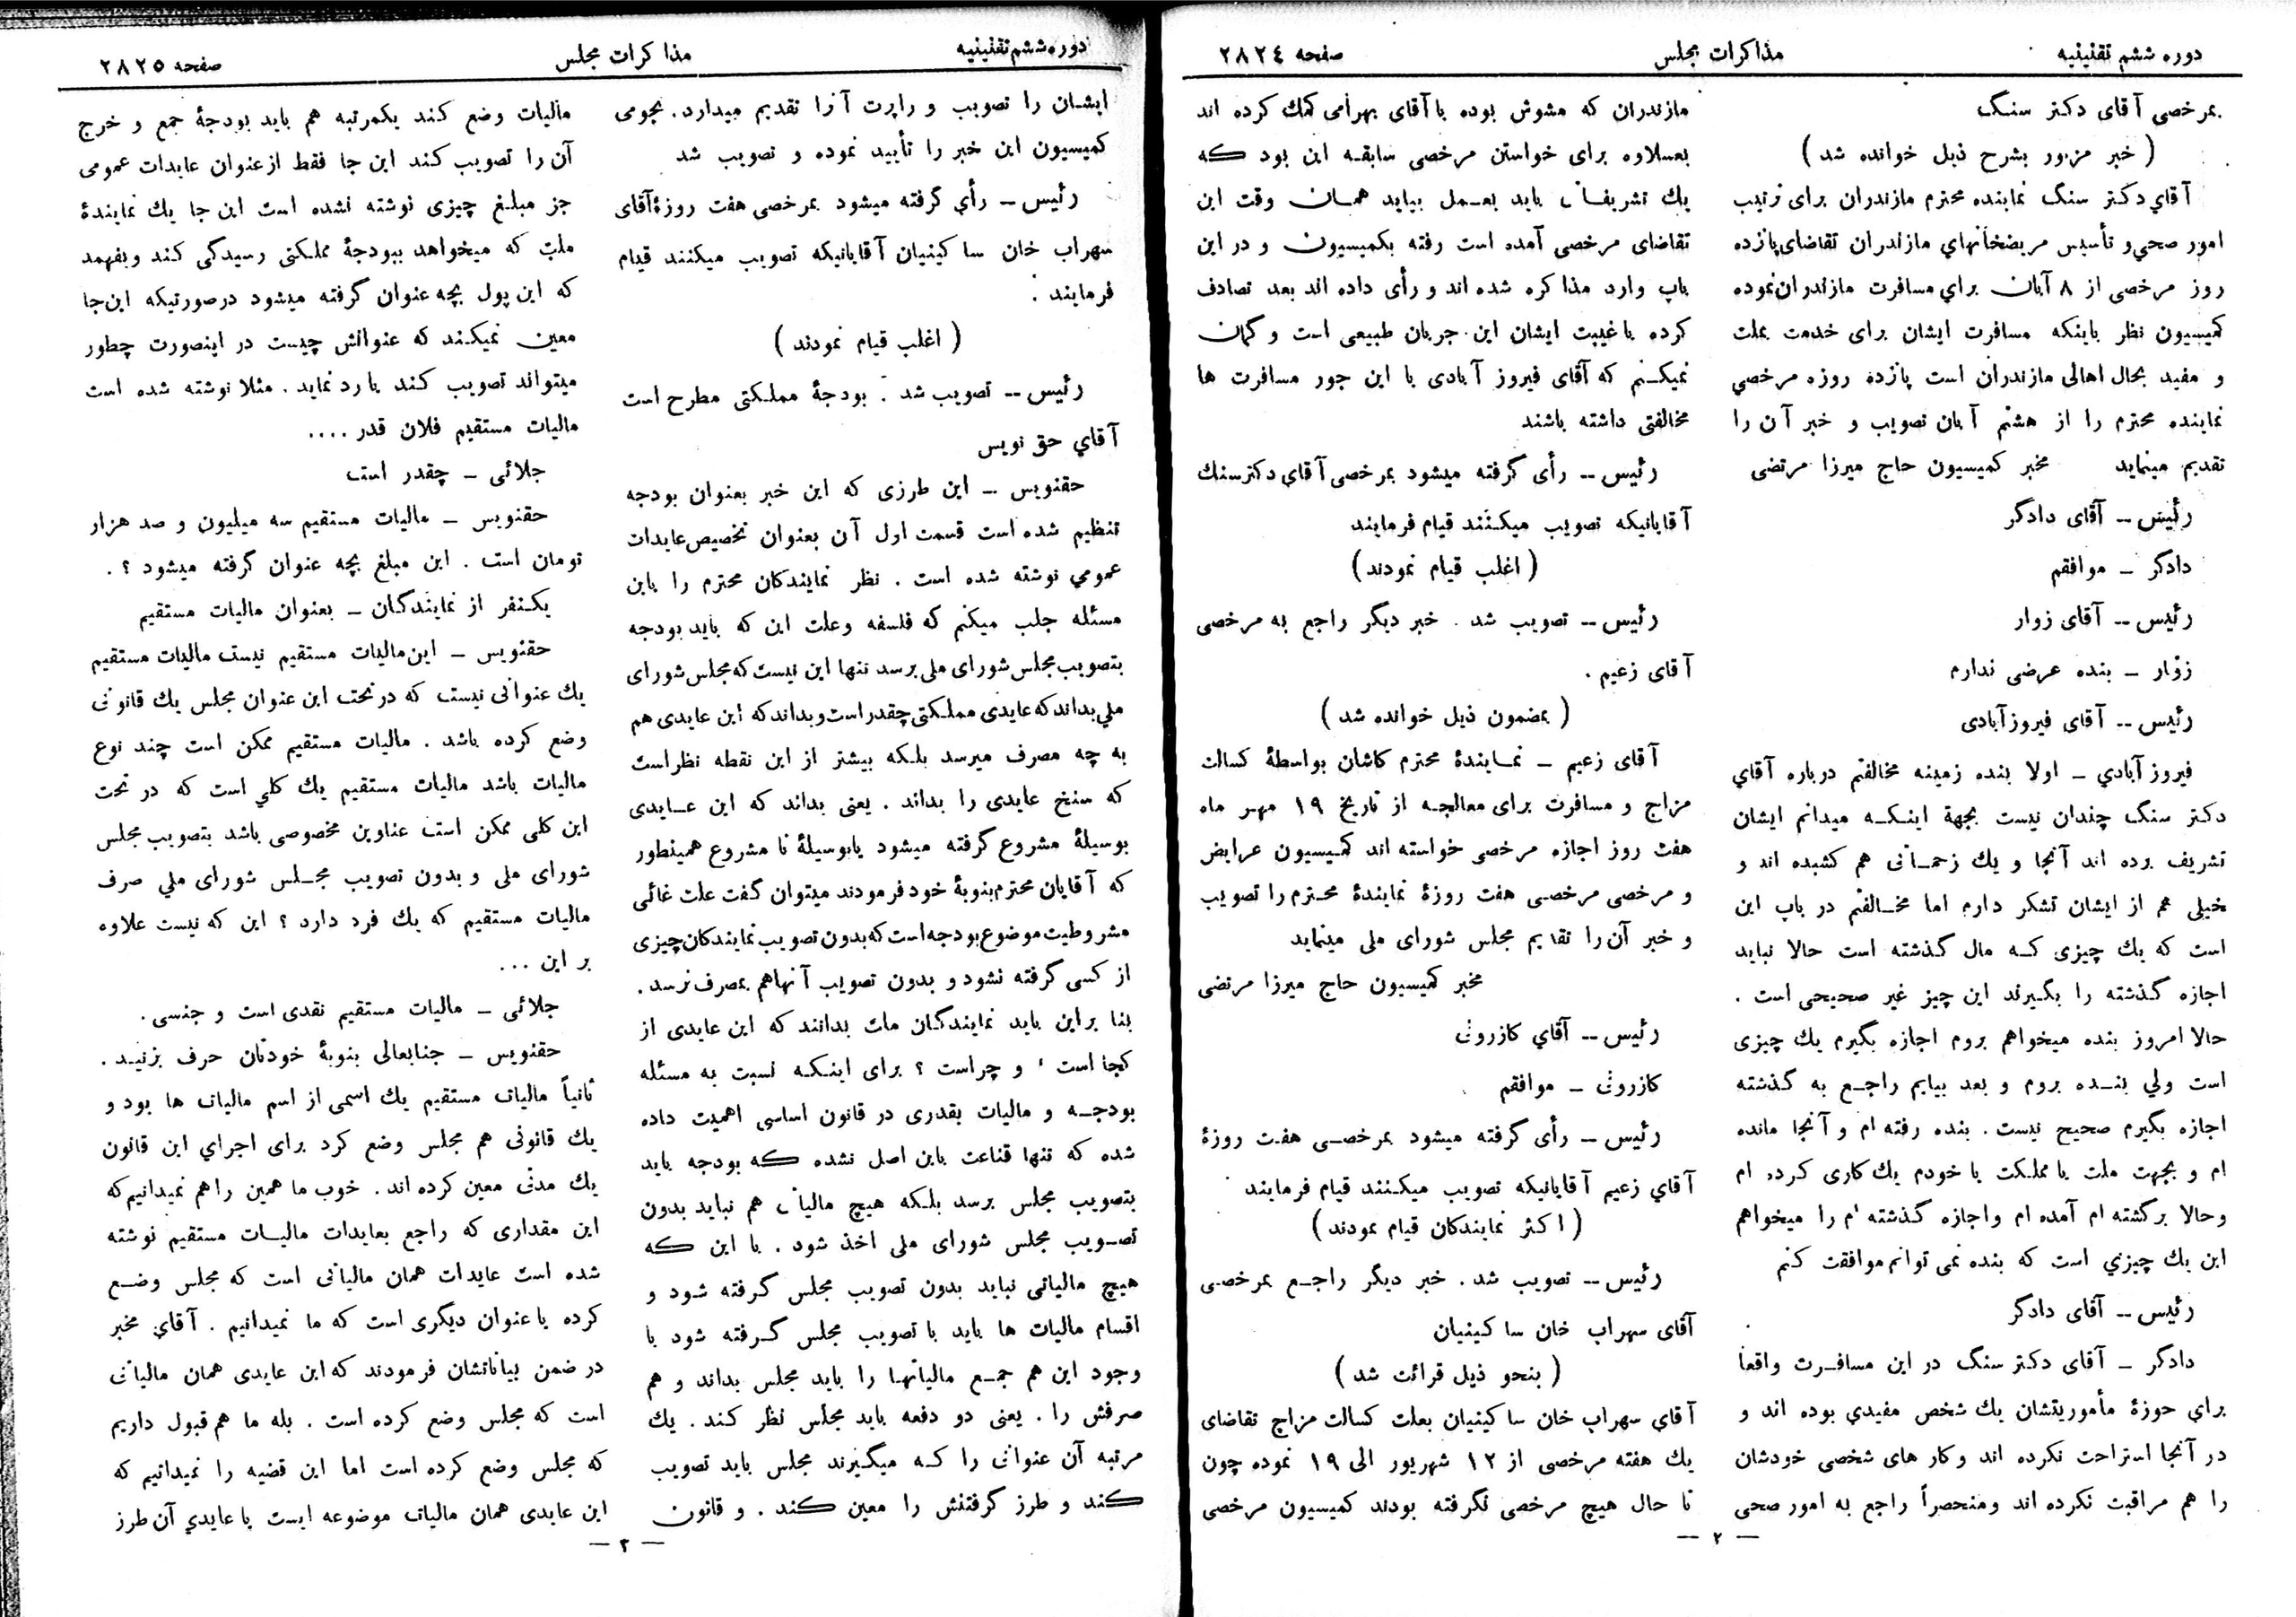 دوره ششم تقنینیه
مذاکرات مجلس
صفحه ۲۸۲۴
بمرخصی آقای دکتر سنگ
( خبر مزبور بشرح ذیل خوانده شد )
آقاي دکتر سنگ نماینده محترم مازندران برای ترتیب
امور صحي و تأسیس مریضخانهاي مازندران تقاضای پانزده
روز مرخصی از ۸ آبان براي مسافرت مازندران نموده
کمیسیون نظر باینکه مسافرت ایشان برای خدمت بملت
و مفید بحال اهالی مازندران است پانزده روزه مرخصي
نماینده محترم را از هشتم آبان تصویب و خبر آن را
تقدیم مینماید مخبر کمیسیون حاج میرزا مرتضی
رئیس -- آقای دادگر
دادگر - موافقم
رئیس -- آقای زوار
زوّار - بنده عرضی ندارم
رئیس -- آقای فیروزآبادی
فیروز آبادي - اولا بنده زمینه مخالفتم درباره آقاي
دکتر سنگ چندان نیست بجهة اینکه میدانم ایشان
تشریف برده اند آنجا و یك زحماتی هم کشیده اند و
خیلی هم از ایشان تشکر دارم اما مخالفتم در باب این
است که یك چیزی که مال گذشته است حالا نباید
اجازه گذشته را بگیرند این چیز غیر صحیحی است .
حالا امروز بنده میخواهم بروم اجازه بگیرم یك چیزی
است ولي بنده بروم و بعد بیایم راجع به گذشته
اجازه بگیرم صحیح نیست . بنده رفته ام و آنجا مانده
ام و بجهت ملت یا مملکت یا خودم یك کاری کرده ام
وحالا برگشته ام آمده ام واجازه گذشته ام را میخواهم
این یك چیزي است که بنده نمی توانم موافقت کنم
رئیس -- آقای دادگر
دادگر - آقای دکتر سنگ در این مسافرت واقعاً
براي حوزهٔ مأموریتشان یك شخص مفیدي بوده اند و
در آنجا استراحت نکرده اند و کار های شخصی خودشان
را هم مراقبت نکرده اند ومنحصراً راجع به امور صحی
مازندران که مشوش بوده با آقای بهرامی کمك کرده اند
بعلاوه برای خواستن مرخصی سابقه این بود که
یك تشریفاتی باید بعمل بیاید همان وقت این
تقاضای مرخصی آمده است رفته بکمیسیون و در این
باب وارد مذاکره شده اند و رأی داده اند بعد تصادف
کرده با غیبت ایشان این جریان طبیعی است و گمان
نمیکنم که آقای فیروز آبادی با این جور مسافرت ها
مخالفتی داشته باشند
رئیس -- رأی گرفته میشود بمرخصی آقاي دکتر سنك
آقایانیکه تصویب میکنند قیام فرمایند
( اغلب قیام نمودند )
رئیس -- تصویب شد . خبر دیگر راجع به مرخصی
آقای زعیم .
( بمضمون ذیل خوانده شد )
آقای زعیم - نمایندهٔ محترم کاشان بواسطهٔ کسالت
مزاج و مسافرت برای معالجه از تاریخ ۱۹ مهر ماه
هفت روز اجازه مرخصی خواسته اند کمیسیون عرایض
و مرخصی مرخصی هفت روزهٔ نمایندهٔ محترم را تصویب
و خبر آن را تقدیم مجلس شورای ملی مینماید
مخبر کمیسیون حاج میرزا مرتضی
رئیس -- آقاي کازرونی
کازرونی - موافقم
رئیس - رأی گرفته میشود بمرخصی هفت روزهٔ
آقاي زعیم آقایانیکه تصویب میکنند قیام فرمایند
( اکثر نمایندگان قیام نمودند )
رئیس -- تصویب شد . خبر دیگر راجع بمرخصی
آقای سهراب خان ساکینیان
( بنحو ذیل قرائت شد )
آقاي سهراب خان ساکینیان بعلت کسالت مزاج تقاضای
یك هفته مرخصی از ۱۲ شهریور الی ۱۹ نموده چون
تا حال هیچ مرخصی نگرفته بودند کمیسیون مرخصی
— ۲ —
دوره ششم تقنینیه
مذاکرات مجلس
صفحه ۲۸۲۵
ایشان را تصویب و راپرت آنرا تقدیم میدارد . نجومی
کمیسیون این خبر را تأیید نموده و تصویب شد
رئیس - رأي گرفته میشود بمرخصی هفت روزهٔ آقای
سهراب خان ساکینیان آقایانیکه تصویب میکنند قیام
فرمایند .
( اغلب قیام نمودند )
رئیس -- تصویب شد . بودجهٔ مملکتی مطرح است
آقاي حق نویس
حقنویس - این طرزی که این خبر بعنوان بودجه
تنظیم شده است قسمت اول آن بعنوان تخصیص عایدات
عمومي نوشته شده است . نظر نمایندگان محترم را باین
مسئله جلب میکنم که فلسفه و علت این که باید بودجه
بتصویب مجلس شورای ملی برسد تنها این نیست که مجلس شورای
ملي بداند که عایدی مملکتی چقدر است و بداند که این عایدی هم
به چه مصرف میرسد بلکه بیشتر از این نقطه نظر است
که سنخ عایدی را بداند . یعنی بداند که این عایدی
بوسیلهٔ مشروع گرفته میشود یا بوسیلهٔ نا مشروع همینطور
که آقایان محترم بنوبهٔ خود فرمودند میتوان گفت علت غائی
مشروطیت موضوع بودجه است که بدون تصویب نمایندگان چیزی
از کسی گرفته نشود و بدون تصویب آنها هم بمصرف نرسد .
بنا براین باید نمایندگان ملت بدانند که این عایدی از
کجا است ، و چراست ؟ برای اینکه نسبت به مسئله
بودجه و مالیات بقدری در قانون اساسی اهمیت داده
شده که تنها قناعت باین اصل نشده که بودجه باید
بتصویب مجلس برسد بلکه هیچ مالیاتی هم نباید بدون
تصویب مجلس شورای ملی اخذ شود . با این که
هیچ مالیاتی نباید بدون تصویب مجلس گرفته شود و
اقسام مالیات ها باید با تصویب مجلس گرفته شود با
وجود این هم جمع مالیاتها را باید مجلس بداند و هم
صرفش را . یعنی دو دفعه باید مجلس نظر کند . یك
مرتبه آن عنوانی را که میگیرند مجلس باید تصویب
کند و طرز گرفتنش را معین کند . و قانون
مالیات وضع کند یکمرتبه هم باید بودجهٔ جمع و خرج
آن را تصویب کند این جا فقط از عنوان عایدات عمومی
جز مبلغ چیزی نوشته نشده است این جا یك نمایندهٔ
ملت که میخواهد ببودجهٔ مملکتی رسیدگی کند وبفهمد
که این پول بچه عنوان گرفته میشود درصورتیکه این جا
معین نمیکند که عنوانش چیست در اینصورت چطور
میتواند تصویب کند یا رد نماید . مثلا نوشته شده است
مالیات مستقیم فلان قدر ....
جلائی - چقدر است
حقنویس - مالیات مستقیم سه میلیون و صد هزار
تومان است . این مبلغ بچه عنوان گرفته میشود ؟ .
یکنفر از نمایندگان - بعنوان مالیات مستقیم
حقنویس - این مالیات مستقیم نیست مالیات مستقیم
یك عنوانی نیست که در تحت این عنوان مجلس یك قانونی
وضع کرده باشد . مالیات مستقیم ممکن است چند نوع
مالیات باشد مالیات مستقیم یك کلي است که در تحت
این کلی ممکن است عناوین مخصوصی باشد بتصویب مجلس
شورای ملی و بدون تصویب مجلس شورای ملي صرف
مالیات مستقیم که یك فرد دارد ؟ این که نیست علاوه
بر این ...
جلائی - مالیات مستقیم نقدی است و جنسی .
حقنویس - جنابعالی بنوبهٔ خودتان حرف بزنید .
ثانیاً مالیات مستقیم یك اسمی از اسم مالیات ها بود و
یك قانونی هم مجلس وضع کرد برای اجراي این قانون
یك مدتی معین کرده اند . خوب ما همین را هم نمیدانیم که
این مقداری که راجع بعایدات مالیات مستقیم نوشته
شده است عایدات همان مالیاتی است که مجلس وضع
کرده یا عنوان دیگری است که ما نمیدانیم . آقاي مخبر
در ضمن بیاناتشان فرمودند که این عایدی همان مالیاتی
است که مجلس وضع کرده است . بله ما هم قبول داریم
که مجلس وضع کرده است اما این قضیه را نمیدانیم که
این عایدی همان مالیات موضوعه ایست یا عایدي آن طرز
— ۳ —